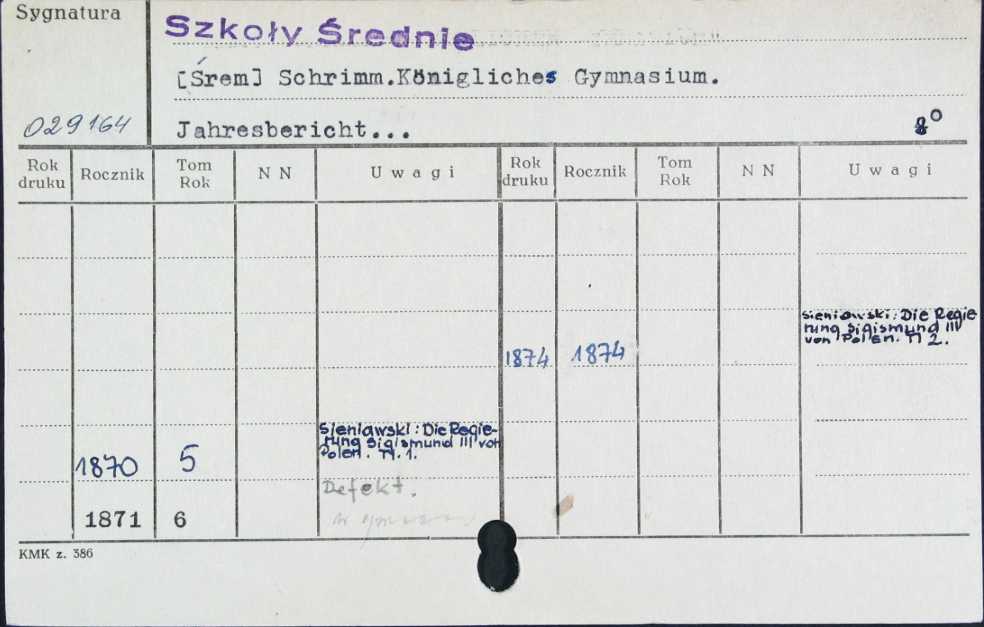 Sygnatura
Szkoły Średnie
[Śrem] Schrimm.Königliches Gymnasium.
029164
Jahresbericht...
8°
Rok druku
Rocznik
Tom Rok
N N
Uwagi
Rok druku
Rocznik
Tom Rok
N N
Uwagi
1874 1874
Sieniawski: Die Regie
rung Sigismund III
von Polen. Tl 2.
1870 5
Sieniawski: Die Regie-
rung Sigismund III von
Polen. Tl. 1.
Defekt.
1871 6
KMK z. 386